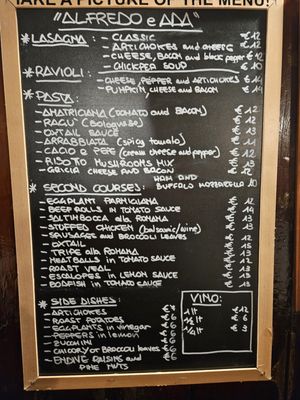 TAKE A PICTURE OF THE MENU!
"ALFREDO e ADA"
* LASAGNA: - CLASSIC € 12
- ARTICHOKES and CHEESE € 12
- CHEESE, BACON and black pepper € 12
- CHICKPEA SOUP € 10
* RAVIOLI: - CHEESE, PEPPER and ARTICHOKES € 14
- PUMPKIN, CHEESE and BACON € 14
* PASTA:
- AMATRICIANA (TOMATO and BACON) € 12
- RAGÙ (Bolognese) € 12
- OXTAIL SAUCE € 13
- ARRABBIATA (spicy tomato) € 11
- CACIO e PEPE (cream cheese and pepper) € 12
- RISOTTO MUSHROOMS MIX € 13
- GRICIA CHEESE and BACON € 12
HAM AND BUFFALO MOZZARELLA 10
* SECOND COURSES:
- EGGPLANT PARMIGIANA € 12
- BEEF ROLLS in TOMATO SAUCE € 14
- SALTIMBOCCA alla ROMANA € 13
- STUFFED CHICKEN (balsamic/wine) € 13
- SAUSAGE and BROCCOLI LEAVES € 12
- OXTAIL
- TRIPE alla ROMANA € 13
- MEATBALLS in TOMATO SAUCE € 12
- ROAST VEAL € 13
- ESCALOPES in LEMON SAUCE € 13
- CODFISH in TOMATO SAUCE € 13
* SIDE DISHES:
- ARTICHOKES
- ROAST POTATOES € 6
- EGGPLANTS in vinegar € 6
- PEPPERS in lemon € 6
- ZUCCHINI € 6
- CHICORY or BROCCOLI leaves € 6
- ENDIVE RAISINS and € 6
PINE NUTS
VINO:
1 lt € 12
1/2 lt € 6
1/4 lt € 3